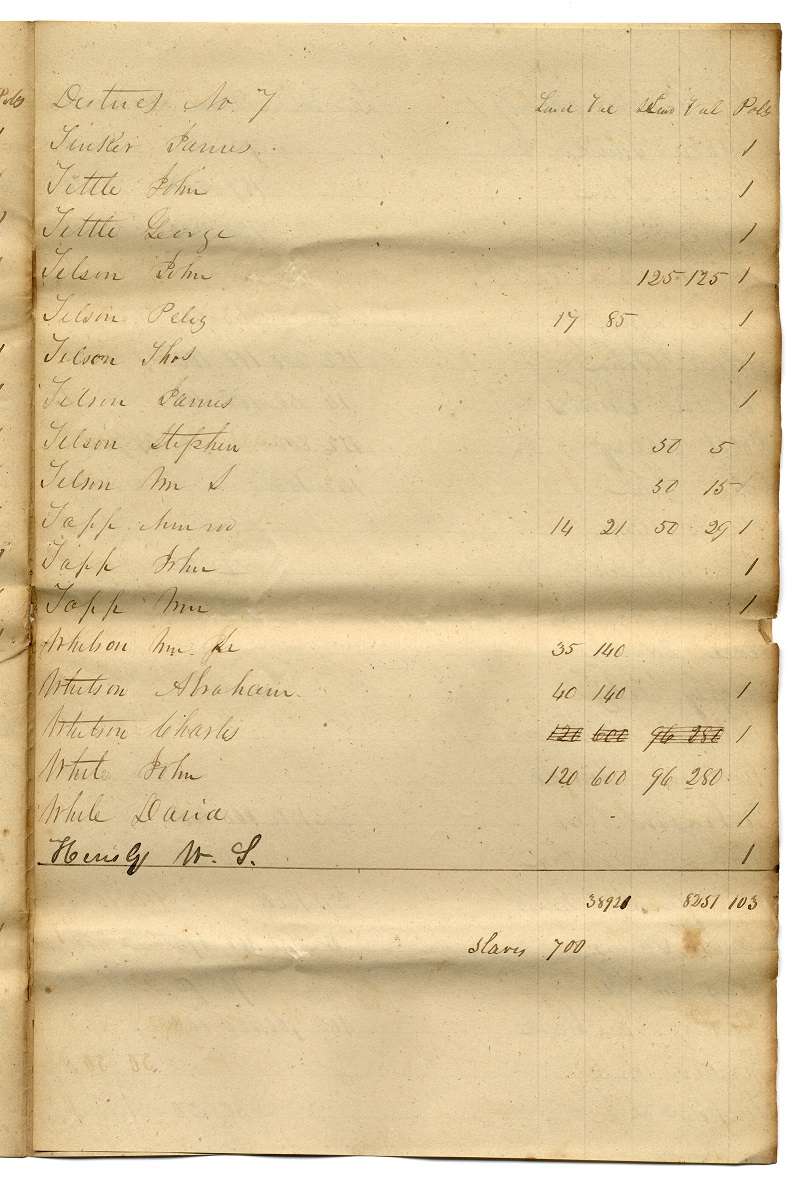 Polls
District No. 7 Land Val Land Val Polls
Tinker James 1
Tittle John 1
Tittle George 1
Tilson John 125 125 1
Tilson Peleg 17 85 1
Tilson Thos 1
Tilson James 1
Tilson Stephen 50 5
Tilson Wm S 50 15
Tapp Nimrod 14 21 50 29 1
Tapp John 1
Tapp Wm 1
Whitson Wm. Sr 35 140
Whitson Abraham 40 140 1
Whitson Charles 120 600 96 280 1
White John 120 600 96 280
White David 1
Hensly W. S. 1
38921 8251 103
Slaves 700